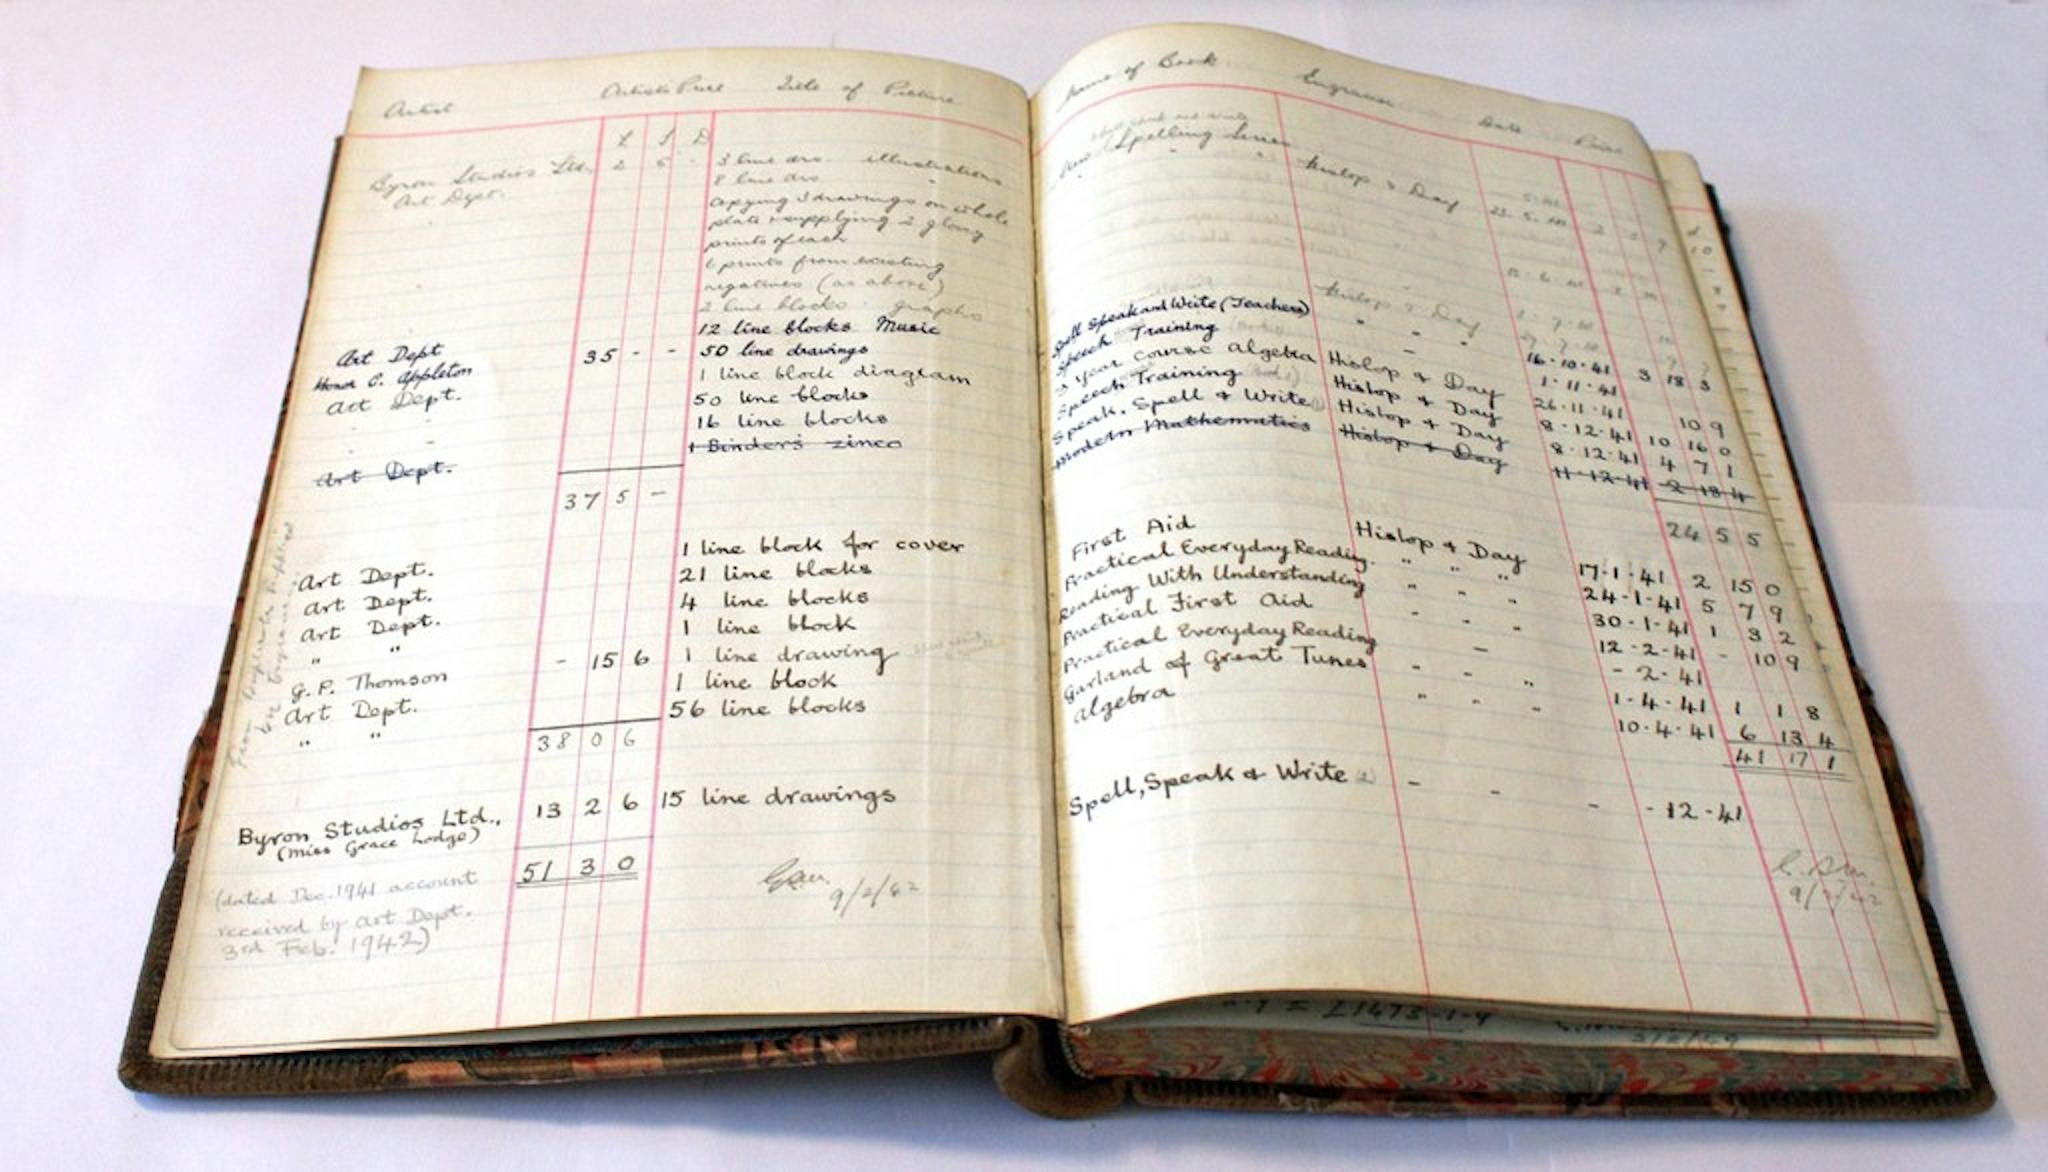 Artist Artist's Price Title of Picture
£ S D
Byron Studios Ltd. 2 5 - 3 line drs. illustrations
Art Dept. 8 line drs. "
copying 3 drawings on whole
plate & supplying 2 glossy
prints of each
6 prints from existing
negatives (as above)
2 line blocks graphs
12 line blocks Music
Art Dept 35 - - 50 line drawings
Honor C. Appleton 1 line block diagram
Art Dept. 50 line blocks
16 line blocks
Art Dept. 1 Binder's zinco
37 5 -
1 line block for cover
Art Dept. 21 line blocks
Art Dept. 4 line blocks
Art Dept. 1 line block
" " - 15 6 1 line drawing
G. P. Thomson 1 line block
Art Dept. 56 line blocks
" "
38 0 6
Byron Studios Ltd., 13 2 6 15 line drawings
(Miss Grace Lodge)
51 3 0
(dated Dec. 1941 account
received by Art Dept.
3rd Feb. 1942)
9/2/42
Name of Book Engraver Date Price
Spelling Hislop & Day
Hislop & Day
Spell Speak and Write (Teachers) " " "
Speech Training 16.10.41 3 18 3
3 year course Algebra Hislop & Day 1.11.41
Speech Training Hislop & Day 26.11.41 10 9
Speak, Spell & Write Hislop & Day 8.12.41 10 16 0
Modern Mathematics Hislop & Day 8.12.41 4 7 1
11.12.41 2 18 4
24 5 5
First Aid Hislop & Day
Practical Everyday Reading " " " 17.1.41 2 15 0
Reading With Understanding " " " 24.1.41 5 7 9
Practical First Aid " " " 30.1.41 1 3 2
Practical Everyday Reading - 12-2-41 - 10 9
Garland of Great Tunes " " " - 2-41
Algebra " " " 1-4-41 1 1 8
10.4.41 6 13 4
41 17 1
Spell, Speak & Write - - - - 12-41
= £1473-1-9